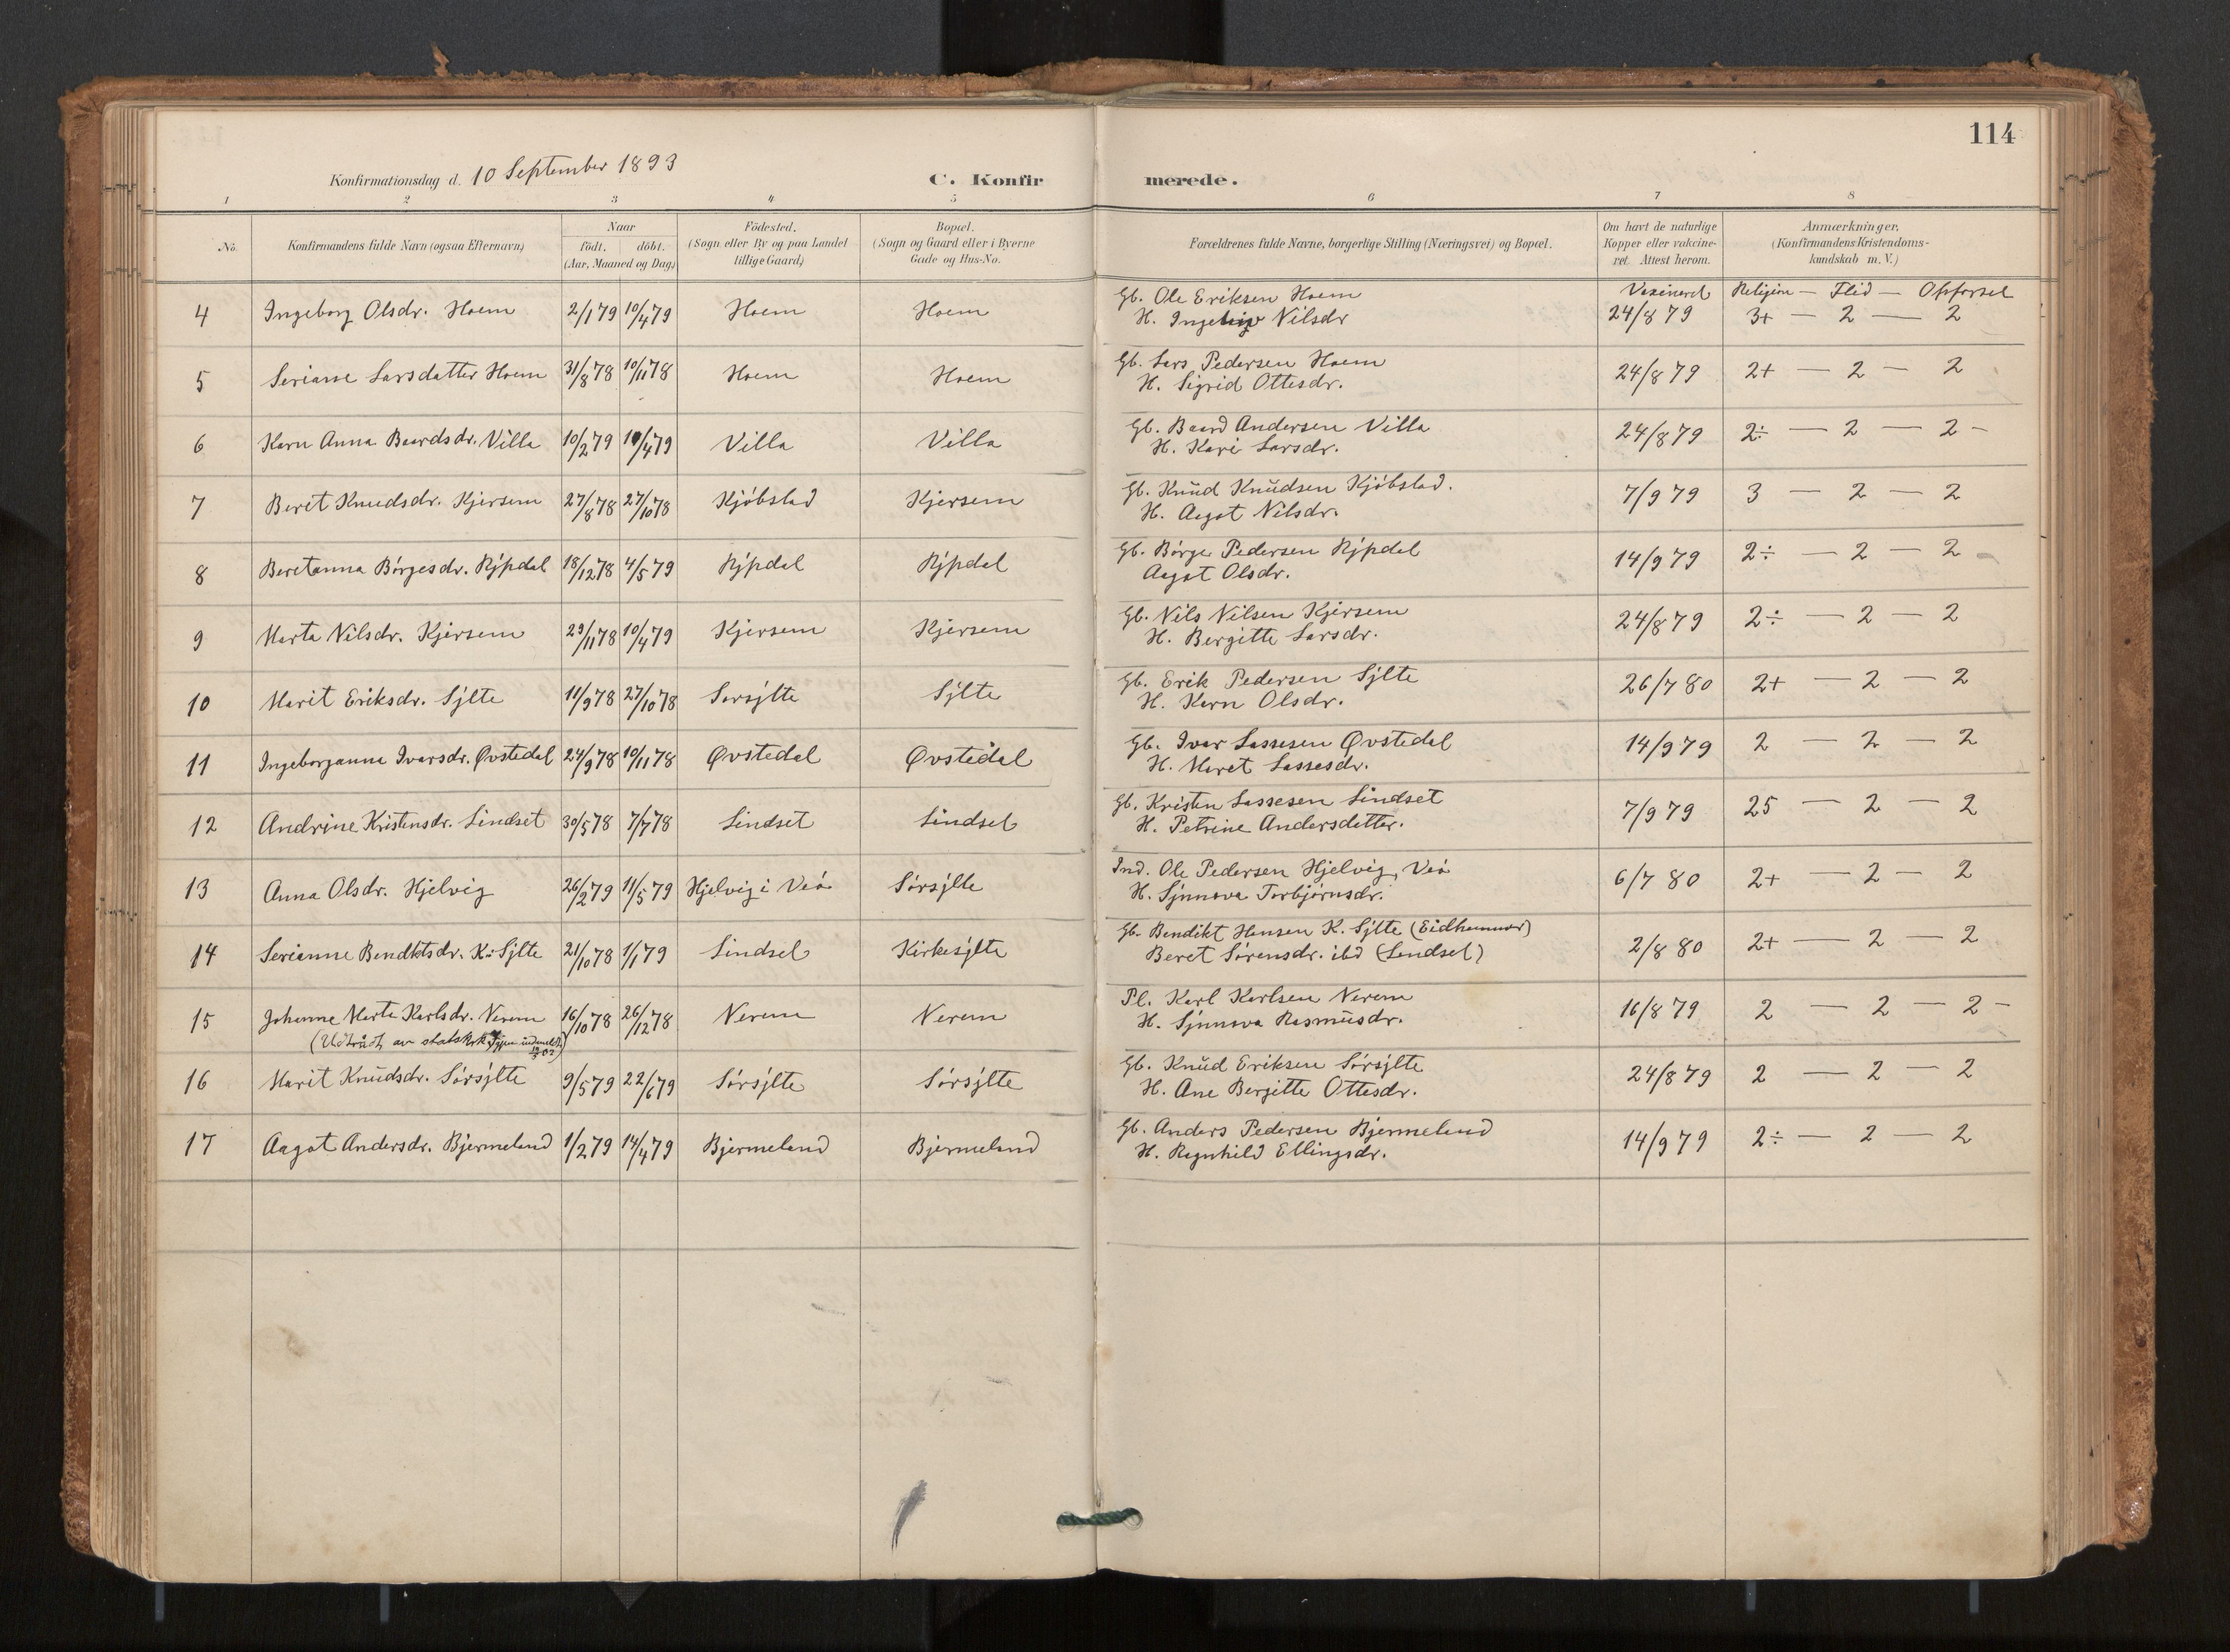 114
Konfirmationsdag d. 10 September 1893
C. Konfirmerede.
1 2 3 4 5 6 7 8
No. | Konfirmandens fulde Navn (ogsaa Efternavn) | Naar födt. döbt. (Aar, Maaned og Dag.) | Födested. (Sogn eller By og paa Landet tillige Gaard) | Bopæl. (Sogn og Gaard eller i Byerne Gade og Hus-No. | Forældrenes fulde Navne, borgerlige Stilling (Næringsvei) og Bopæl. | Om havt de naturlige Kopper eller vakcineret. Attest herom. | Anmærkninger, (Konfirmandens Kristendomskundskab m. V.)
Vaxineret | Religion — Flid — Opførsel
4 | Ingeborg Olsdr. Hoem | 2/1 79 | 10/4 79 | Hoem | Hoem | Gb. Ole Eriksen Hoem
H. Nilsdr | 24/8 79 | 3+ — 2 — 2
5 | Serianne Larsdatter Hoem | 31/8 78 | 10/11 78 | Hoem | Hoem | Gb. Lars Pedersen Hoem
H. Sigrid Ottesdr. | 24/8 79 | 2+ — 2 — 2
6 | Karn Anna Baardsdr. Villa | 10/2 79 | 10/4 79 | Villa | Villa | Gb. Baard Andersen Villa
H. Kari Larsdr. | 24/8 79 | 2÷ — 2 — 2 -
7 | Berit Knudsdr. Kjersem | 27/8 78 | 27/10 78 | Kjöbstad | Kjersem | Gb. Knud Knudsen Kjöbstad.
H. Aagot Nilsdr. | 7/9 79 | 3 — 2 — 2
8 | Beretanna Börgesdr. Rypdal | 18/12 78 | 4/5 79 | Rypdal | Rypdal | Gb. Börge Pedersen Rypdal
Aagot Olsdr. | 14/9 79 | 2÷ — 2 — 2
9 | Marta Nilsdr. Kjersem | 29/11 78 | 10/4 79 | Kjersem | Kjersem | Gb. Nils Nilsen Kjersem
H. Bergitte Larsdr. | 24/8 79 | 2÷ — 2 — 2
10 | Marit Eriksdr. Sylte | 11/9 78 | 27/10 78 | Sorsylte | Sylte | Gb. Erik Pedersen Sylte
H. Karn Olsdr. | 26/7 80 | 2+ — 2 — 2
11 | Ingeborganna Ivarsdr. Øvstedal | 24/9 78 | 10/11 78 | Øvstedal | Øvstedal | Gb. Ivar Lassesen Øvstedal
H. Maret Lassesdr. | 14/9 79 | 2 — 2 — 2
12 | Andrine Kristensdr. Lindset | 30/5 78 | 7/7 78 | Lindset | Lindset | Gb. Kristen Lassesen Lindset
H. Petrine Andersdatter. | 7/9 79 | 25 — 2 — 2
13 | Anna Olsdr. Hjelvig | 26/2 79 | 11/5 79 | Hjelvig i Veö | Sörsylte | Ind. Ole Pedersen Hjelvig, Veö
H. Synnøva Torbjörnsdr. | 6/7 80 | 2+ — 2 — 2
14 | Serianne Bendktsdr. K. Sylte | 21/10 78 | 1/1 79 | Lindset | Kirkesylte | Gb. Bendikt Hansen K. Sylte (Eidhammer)
Beret Sörensdr. ibd (Lindset) | 2/8 80 | 2+ — 2 — 2
15 | Johanne Marta Karlsdr. Nerem | 16/10 78 | 26/12 78 | Nerem | Nerem | Pl. Karl Karlsen Nerem
(Udtraadt av statskirk
H. Synnøva Rasmusdr. | 16/8 79 | 2 — 2 — 2 -
16 | Marit Knudsdr. Sörsylte | 9/5 79 | 22/6 79 | Sörsylte | Sörsylte | Gb. Knud Eriksen Sörsylte
H. Ane Bergitte Ottesdr. | 24/8 79 | 2 — 2 — 2
17 | Aagot Andersdr. Bjermeland | 1/2 79 | 14/4 79 | Bjermeland | Bjermeland | Gb. Anders Pedersen Bjermeland
H. Ragnhild Ellingsdr. | 14/9 79 | 2÷ — 2 — 2